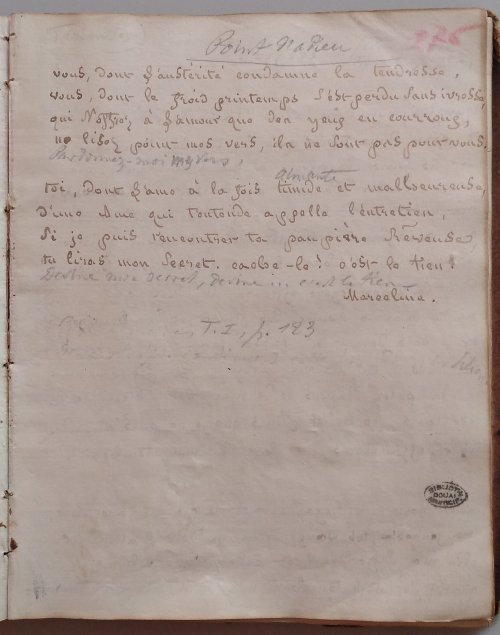 Point d'adieu
vous, dont l'austérité condamne la tendresse,
vous, dont le froid printemps s'est perdu sans ivresse,
qui n'offrez à l'amour que des yeux en courroux,
ne lisez point mes vers, ils ne sont pas pour vous.
Pardonnez-moi mes vers,
aimante
toi, dont l'ame à la fois timide et malheureuse,
d'une ame qui t'entende appelle l'entretien,
si je puis rencontrer ta paupière rêveuse,
tu liras mon secret, cache-le! c'est le tien!
Devine mon secret, devine ... c'est le tien
Marceline.
T. I, p. 183
BIBLIOTH
DOUAI